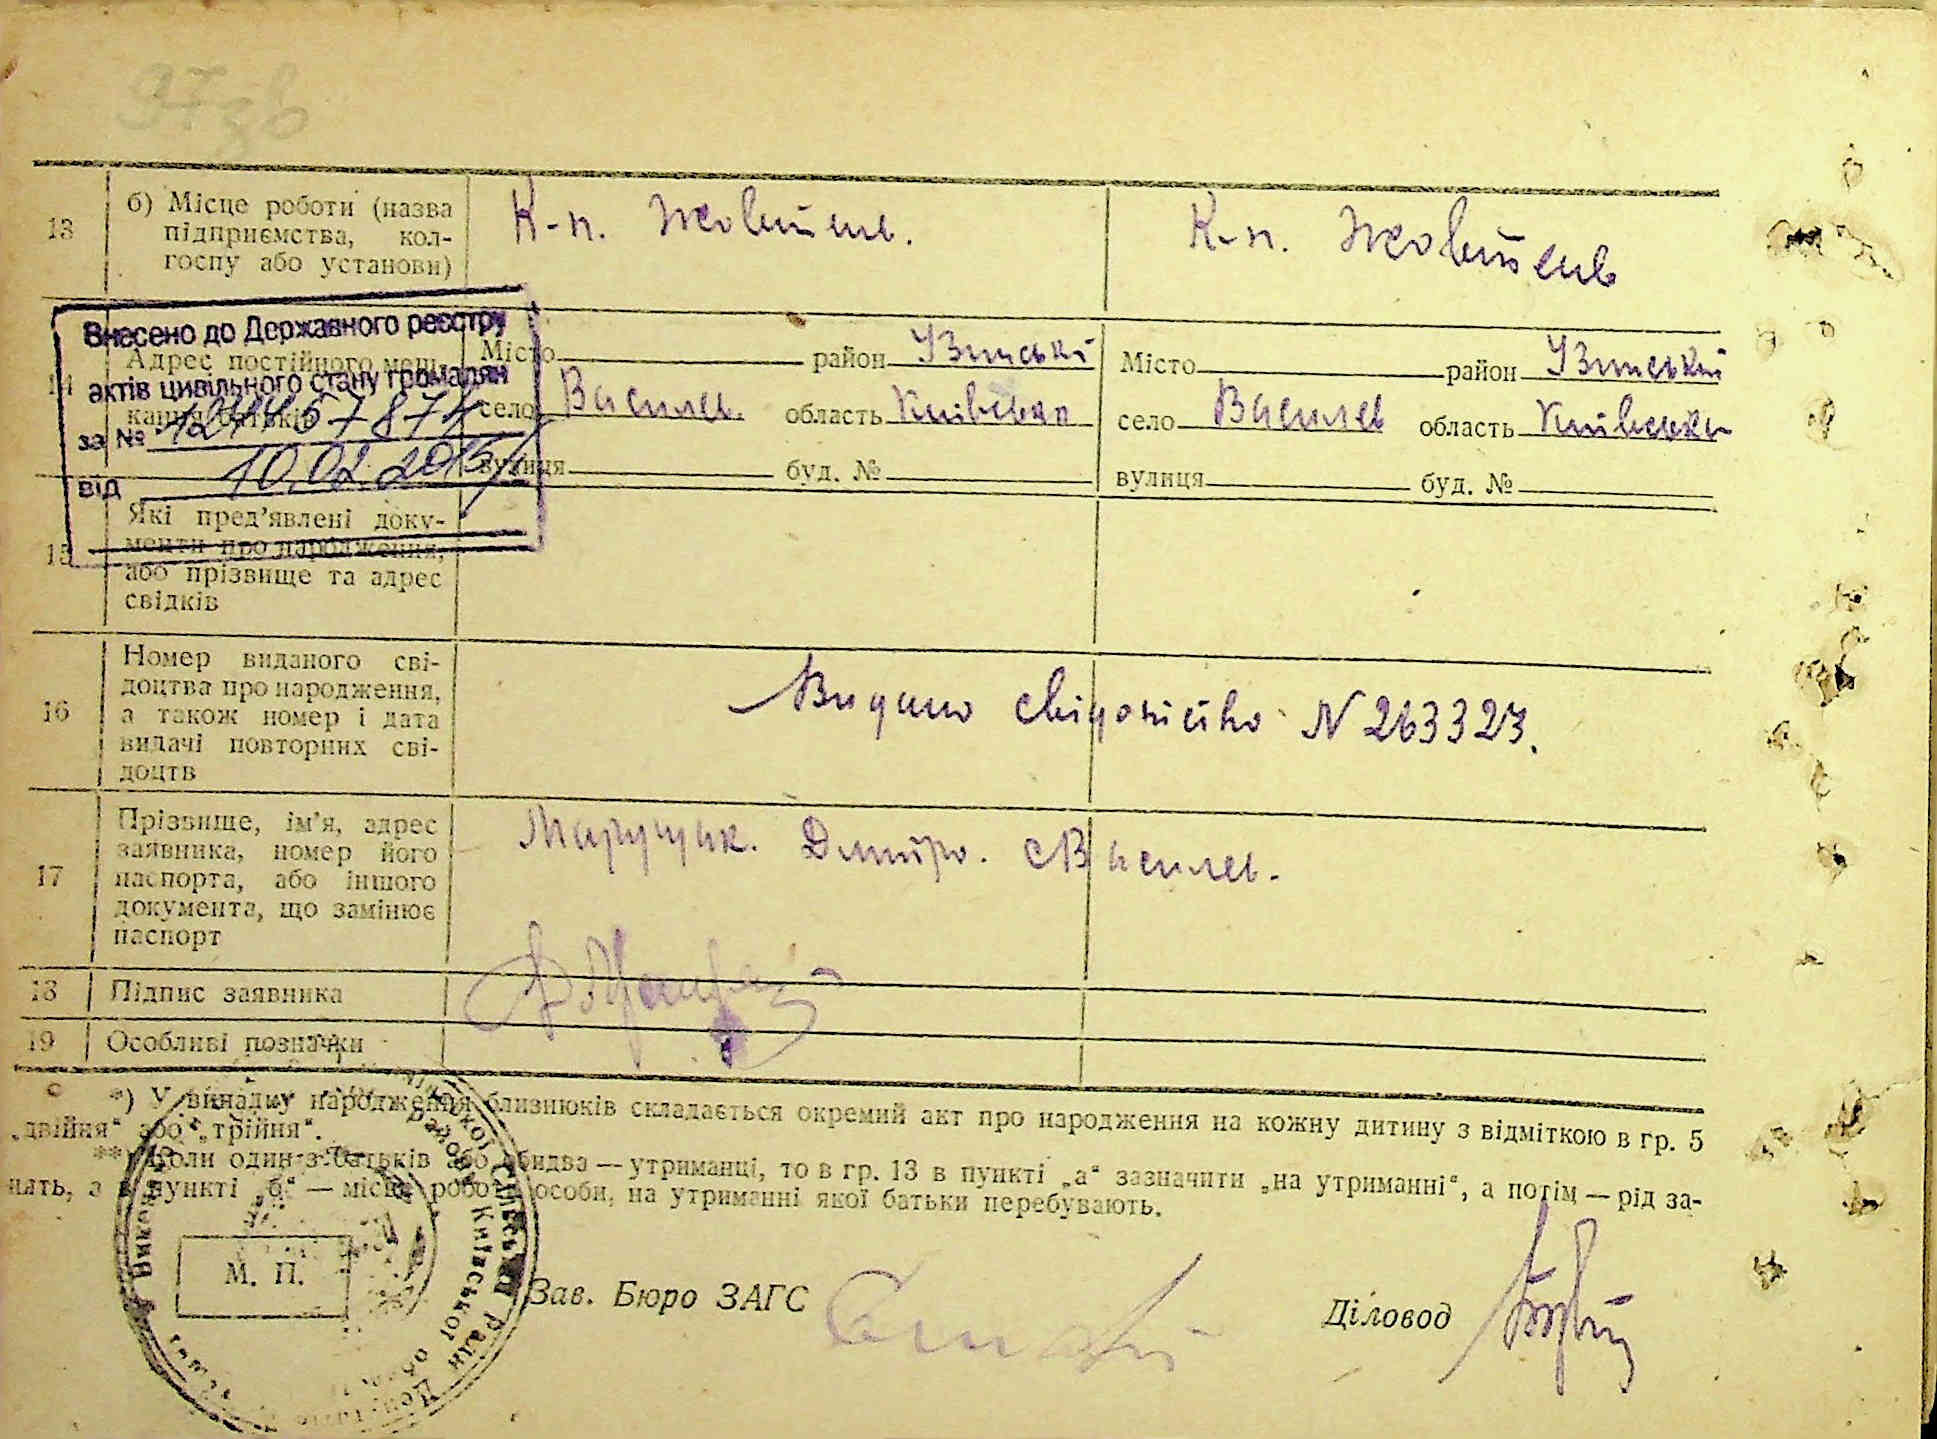 97 зв
13 б) Місце роботи (назва підприємства, колгоспу або установи) К-п. Жовтень. К-п. Жовтень
Внесено до Державного реєстру
актів цивільного стану громадян
за №
від 10.02.2015
14 Адрес постійного меш-
кання батьків
Місто район Узинські Місто район Узинській
село Василев. область Київська село Василев область Київська
вулиця буд. № вулиця буд. №
15 Які пред’явлені доку-
менти про народження,
або прізвище та адрес
свідків
16 Номер виданого сві-
доцтва про народження,
а також номер і дата
видачі повторних сві-
доцтв
Видано свідоцтво N 263323.
17 Прізвище, ім’я, адрес
заявника, номер його
паспорта, або іншого
документа, що замінює
паспорт
Марущак. Дмитро. с Василев.
18 Підпис заявника
19 Особливі позначки
*) У випадку народження близнюків складається окремий акт про народження на кожну дитину з відміткою в гр. 5
„двійня“ або „трійня“.
**) Коли один з батьків або обидва — утриманці, то в гр. 13 в пункті „а“ зазначити „на утриманні“, а потім — рід за-
нять, а в пункті „б“ — місце роботи особи, на утриманні якої батьки перебувають.
М. П.
Зав. Бюро ЗАГС Діловод